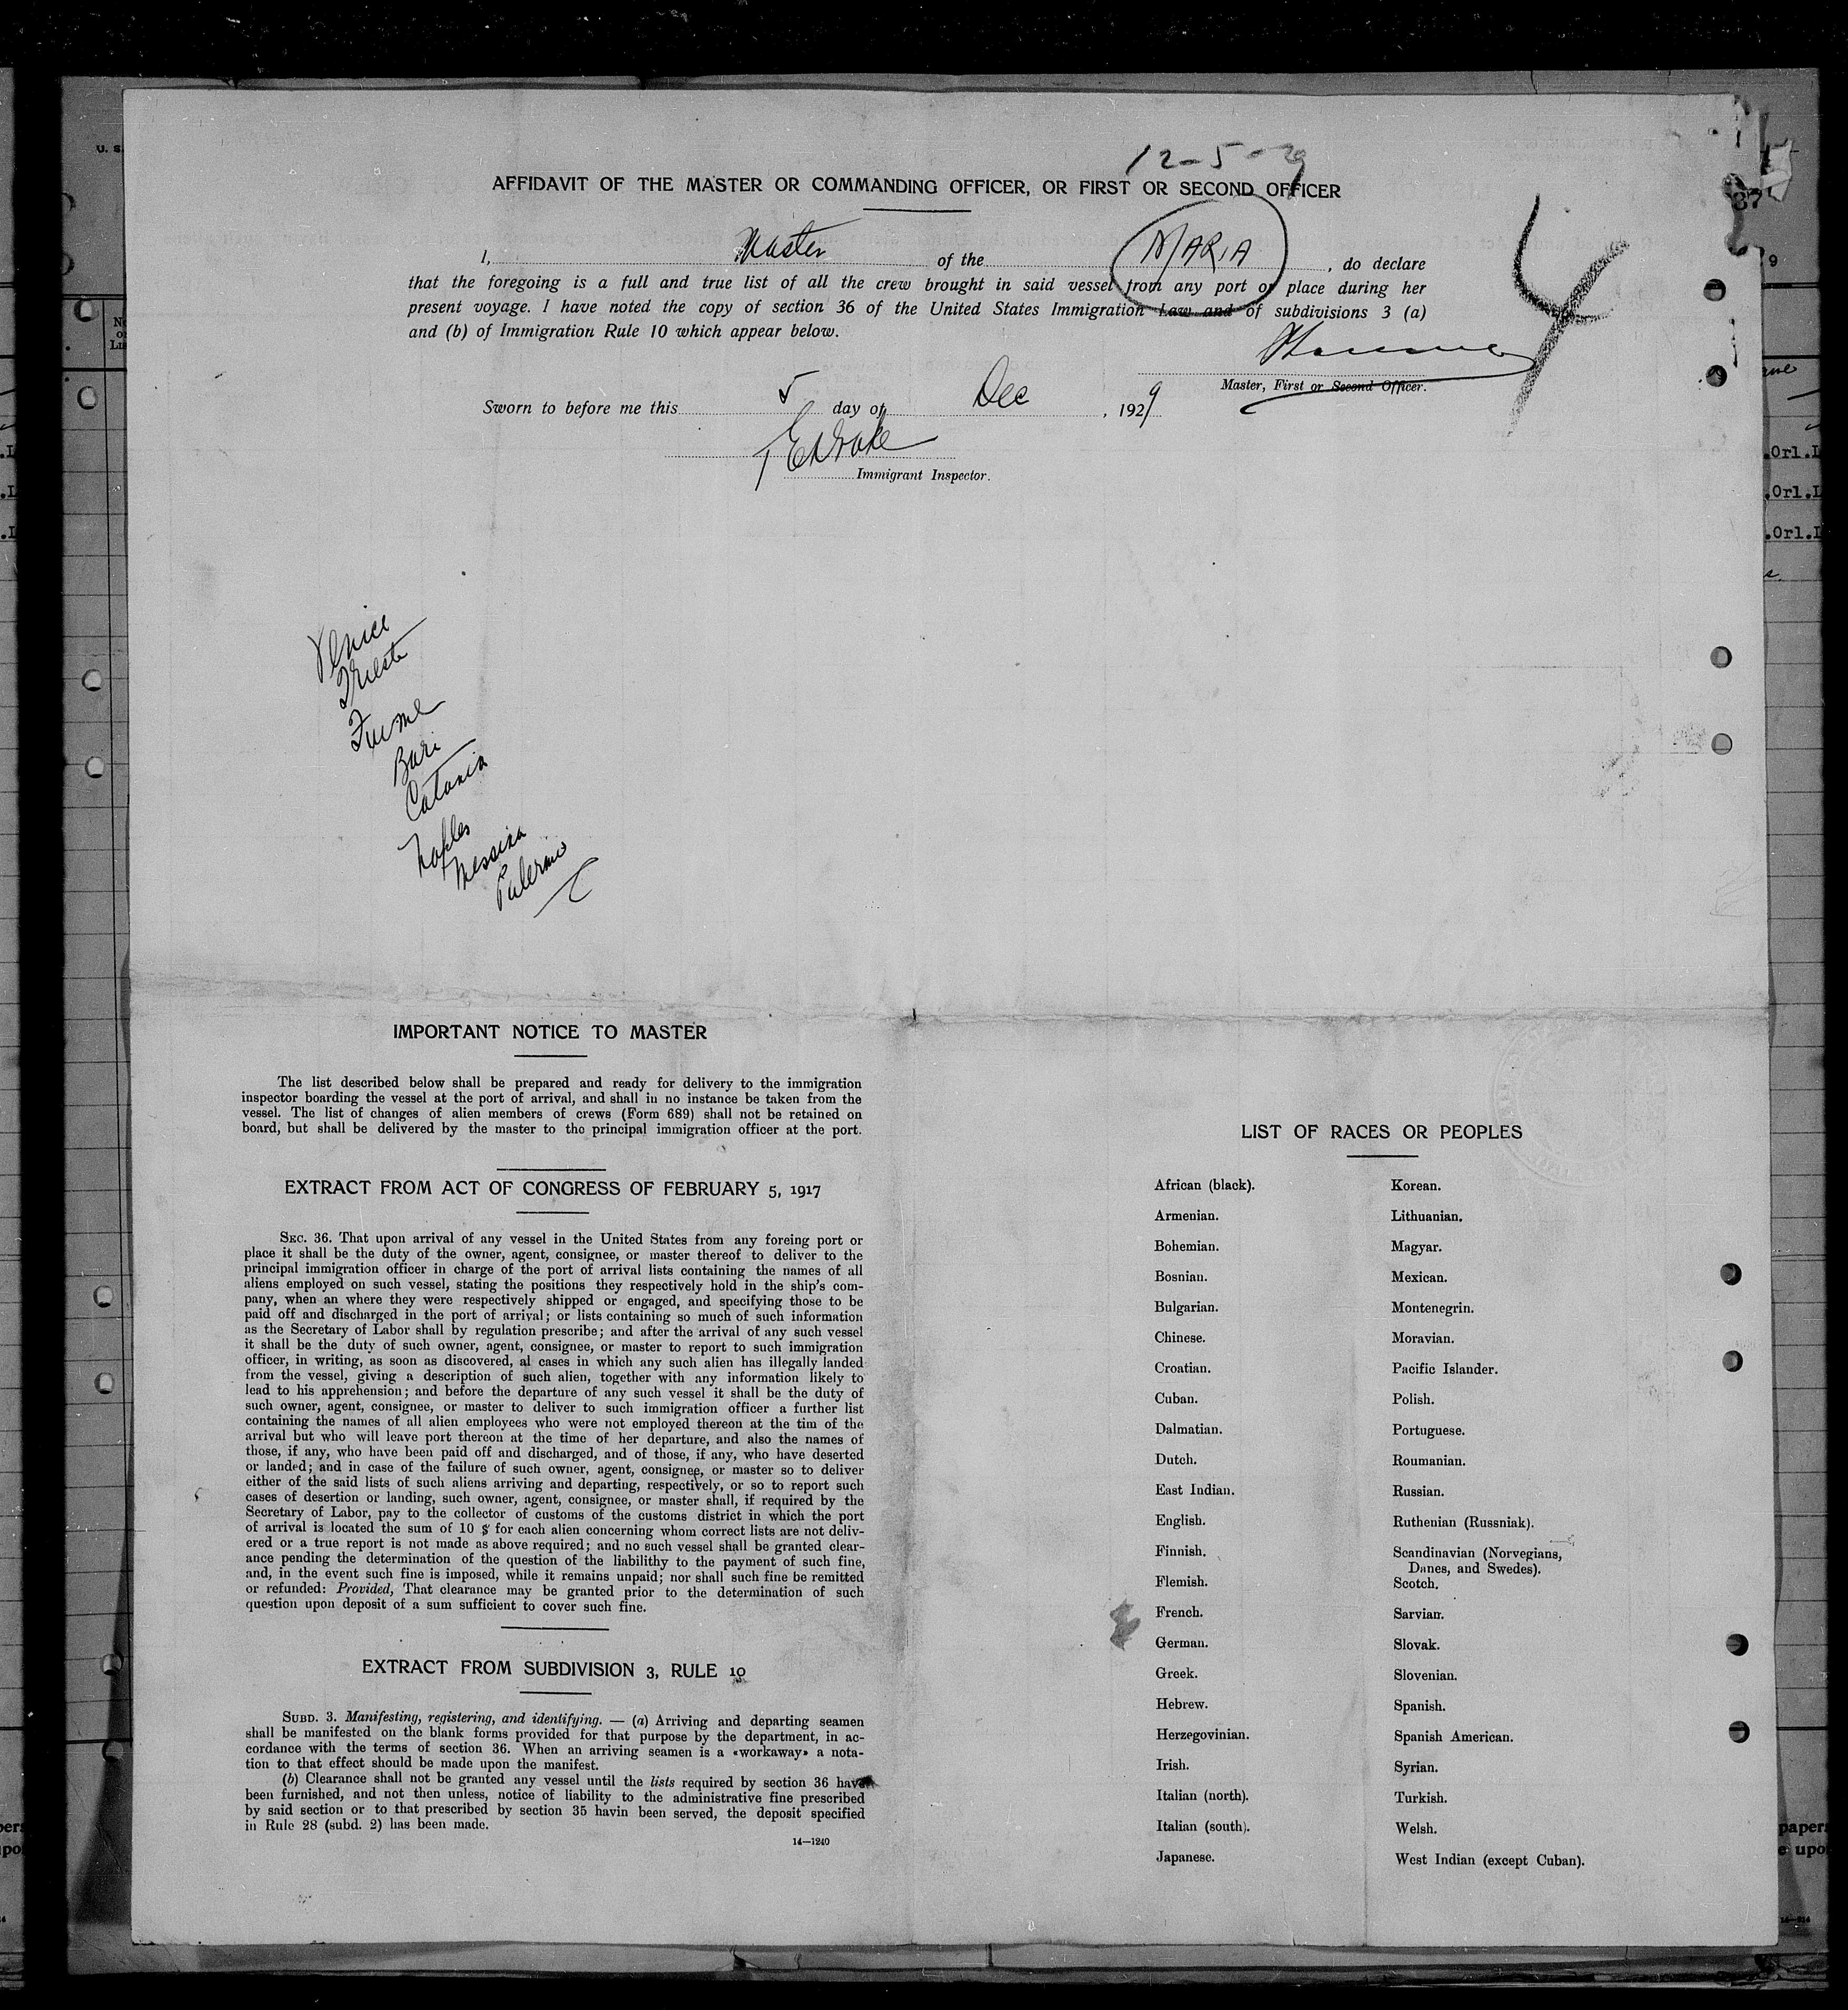 12-5-29
AFFIDAVIT OF THE MASTER OR COMMANDING OFFICER, OR FIRST OR SECOND OFFICER
I, Master of the MARIA, do declare
that the foregoing is a full and true list of all the crew brought in said vessel from any port or place during her
present voyage. I have noted the copy of section 36 of the United States Immigration Law and of subdivisions 3 (a)
and (b) of Immigration Rule 10 which appear below.
4
Master, First or Second Officer.
Sworn to before me this 5 day of Dec, 1929
Immigrant Inspector.
Venice
Trieste
Fiume
Bari
Catania
Naples
Messina
Palermo
IMPORTANT NOTICE TO MASTER
The list described below shall be prepared and ready for delivery to the immigration
inspector boarding the vessel at the port of arrival, and shall in no instance be taken from the
vessel. The list of changes of alien members of crews (Form 689) shall not be retained on
board, but shall be delivered by the master to the principal immigration officer at the port.
EXTRACT FROM ACT OF CONGRESS OF FEBRUARY 5, 1917
SEC. 36. That upon arrival of any vessel in the United States from any foreing port or
place it shall be the duty of the owner, agent, consignee, or master thereof to deliver to the
principal immigration officer in charge of the port of arrival lists containing the names of all
aliens employed on such vessel, stating the positions they respectively hold in the ship's com-
pany, when an where they were respectively shipped or engaged, and specifying those to be
paid off and discharged in the port of arrival; or lists containing so much of such information
as the Secretary of Labor shall by regulation prescribe; and after the arrival of any such vessel
it shall be the duty of such owner, agent, consignee, or master to report to such immigration
officer, in writing, as soon as discovered, al cases in which any such alien has illegally landed
from the vessel, giving a description of such alien, together with any information likely to
lead to his apprehension; and before the departure of any such vessel it shall be the duty of
such owner, agent, consignee, or master to deliver to such immigration officer a further list
containing the names of all alien employees who were not employed thereon at the tim of the
arrival but who will leave port thereon at the time of her departure, and also the names of
those, if any, who have been paid off and discharged, and of those, if any, who have deserted
or landed; and in case of the failure of such owner, agent, consignee, or master so to deliver
either of the said lists of such aliens arriving and departing, respectively, or so to report such
cases of desertion or landing, such owner, agent, consignee, or master shall, if required by the
Secretary of Labor, pay to the collector of customs of the customs district in which the port
of arrival is located the sum of 10 $ for each alien concerning whom correct lists are not deliv-
ered or a true report is not made as above required; and no such vessel shall be granted clear-
ance pending the determination of the question of the liabilithy to the payment of such fine,
and, in the event such fine is imposed, while it remains unpaid; nor shall such fine be remitted
or refunded: Provided, That clearance may be granted prior to the determination of such
question upon deposit of a sum sufficient to cover such fine.
EXTRACT FROM SUBDIVISION 3, RULE 10
SUBD. 3. Manifesting, registering, and identifying. — (a) Arriving and departing seamen
shall be manifested on the blank forms provided for that purpose by the department, in ac-
cordance with the terms of section 36. When an arriving seamen is a «workaway» a nota-
tion to that effect should be made upon the manifest.
(b) Clearance shall not be granted any vessel until the lists required by section 36 have
been furnished, and not then unless, notice of liability to the administrative fine prescribed
by said section or to that prescribed by section 35 havin been served, the deposit specified
in Rule 28 (subd. 2) has been made.
14—1240
LIST OF RACES OR PEOPLES
African (black).
Armenian.
Bohemian.
Bosnian.
Bulgarian.
Chinese.
Croatian.
Cuban.
Dalmatian.
Dutch.
East Indian.
English.
Finnish.
Flemish.
French.
German.
Greek.
Hebrew.
Herzegovinian.
Irish.
Italian (north).
Italian (south).
Japanese.
Korean.
Lithuanian.
Magyar.
Mexican.
Montenegrin.
Moravian.
Pacific Islander.
Polish.
Portuguese.
Roumanian.
Russian.
Ruthenian (Russniak).
Scandinavian (Norvegians,
Danes, and Swedes).
Scotch.
Sarvian.
Slovak.
Slovenian.
Spanish.
Spanish American.
Syrian.
Turkish.
Welsh.
West Indian (except Cuban).